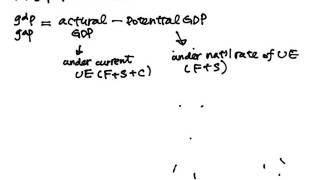 gdp gap = actural GDP − potential GDP
under current UE (F+S+C)
under nat'l rate of UE (F+S)